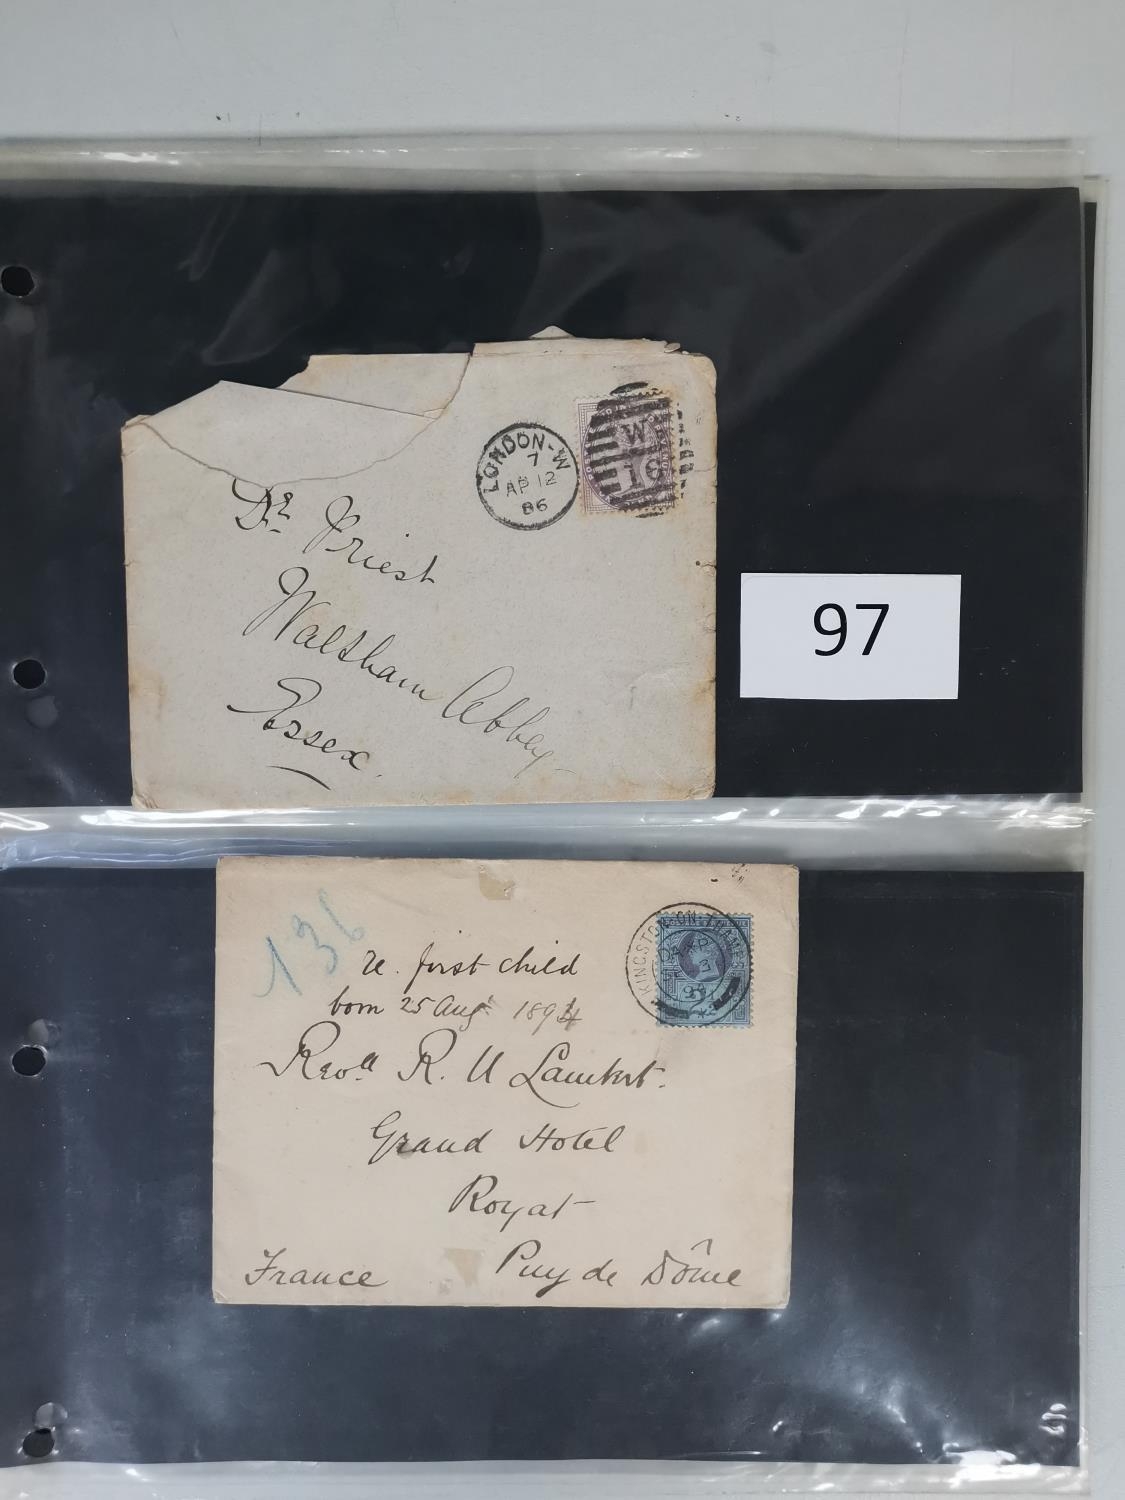 LONDON-W
7
AP 12
86
W
16
Dr. Priest
Waltham Abbey
Essex.
97
136
re. first child
born 25 Aug. 1894
KINGSTON-ON-THAMES
Revd. R. U Lambert.
Grand Hotel
Royat
Puy de Dôme
France